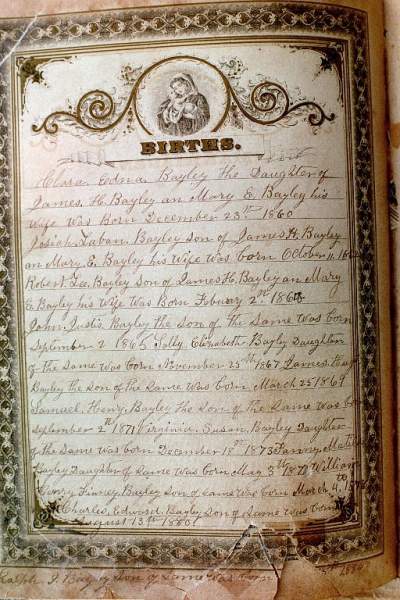 BIRTHS.
Clara Edna Bayley the Daughter of
James. H. Bayley an Mary E. Bayley his
Wife Was Born December 23rd 1860
Josiah Laban Bayley Son of James H. Bayley
an Mary E. Bayley his Wife was born October 11
Robert Lee Bayley Son of James H. Bayley an Mary
E Bayley his Wife Was Born Febuary 2nd
John Justis. Bayley the Son of the Same Was born
September 2 1865 Sally Elizabeth Bayly Daughter
of the Same was born November 25th 1867 James
Bayley the Son of the Same Was born March 25 1869
Samuel Henry Bayley the Son of the Same Was
September 2nd 1871 Virginia. Susan. Bayley Daughter
of the Same was born December 18th 1873 Fanny
Bayley Daughter of Same was born May 3th William
Bayley Son of Same Was born March 4
Charles. Edward. Bayley Son of Same was born
August 13th 1880
Ralph Bayley Son of Same was born